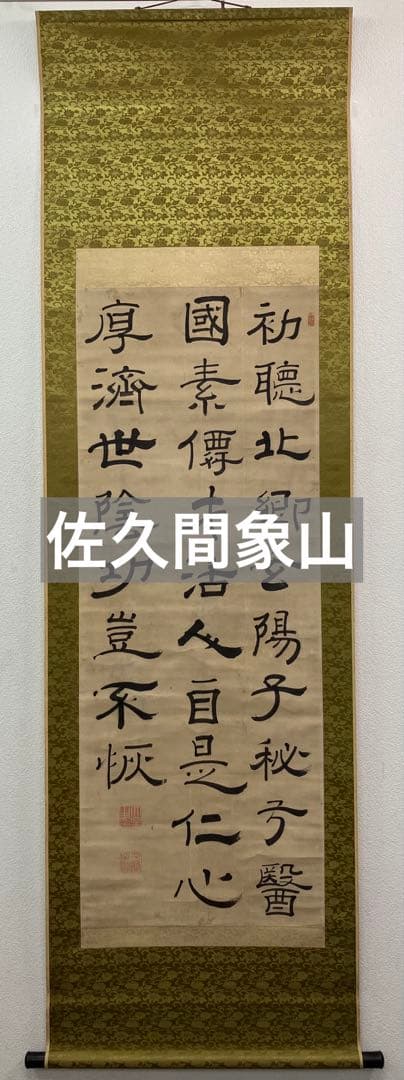 初聽北鄉 陽子秘方醫
國素傳 活人自是仁心
厚濟世陰功豈不恢
佐久間象山